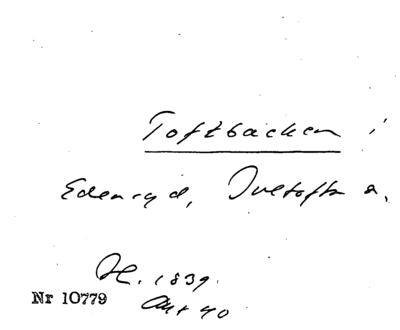 Toftbacken i
Edenryd, Ivetofta s.
H. 1839.
Nr 10779
Akt 40